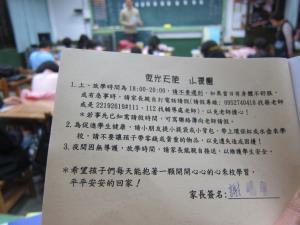 夜光天使 山腰團
1.上、放學時間為18:00-20:00,請不要遲到,如果當日有身體不舒服,
或有急事時,請家長親自打電話請假(請假專線:0952740418找蔡老師
或是22192619#111,112找輔導處老師),以免老師擔心!
*若事先已知需請假時間,可寫聯絡簿向老師請假。
2.為促進學生健康,請小朋友提小提袋或小背包,帶上環保杯或水壺來學
校,請不要讓孩子帶零錢或貴重的物品,以免遺失後造成困擾!
3.夜間因無導護,放學時間,請家長能親自接送,以維護學生安全。
*希望孩子們每天能抱著一顆開開心心的心來校學習,
平平安安的回家!
家長簽名:謝